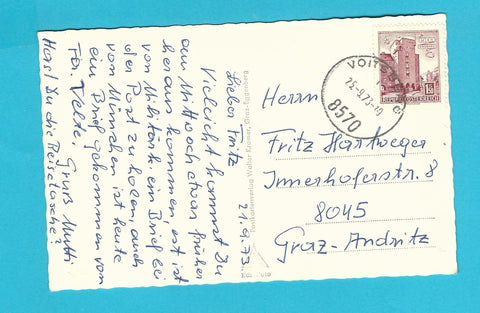 Lieber Fritz 21.9.73.
Vielleicht kommst Du
am Mittwoch etwas früher
heraus kommen, est ist
vom Militärk. ein Brief bei
der Post zu holen, auch
von München ist heute
ein Brief gekommen von
Fa. Velte. Gruß Mutti
Hast Du die Reisetasche?
Postkartenverlag Walter Kramer, Graz-Eggenberg
VOITSBERG
8570
REPUBLIK ÖSTERREICH
Herrn
Fritz Hartweger
Innerhoferstr. 8
8045
Graz-Andritz